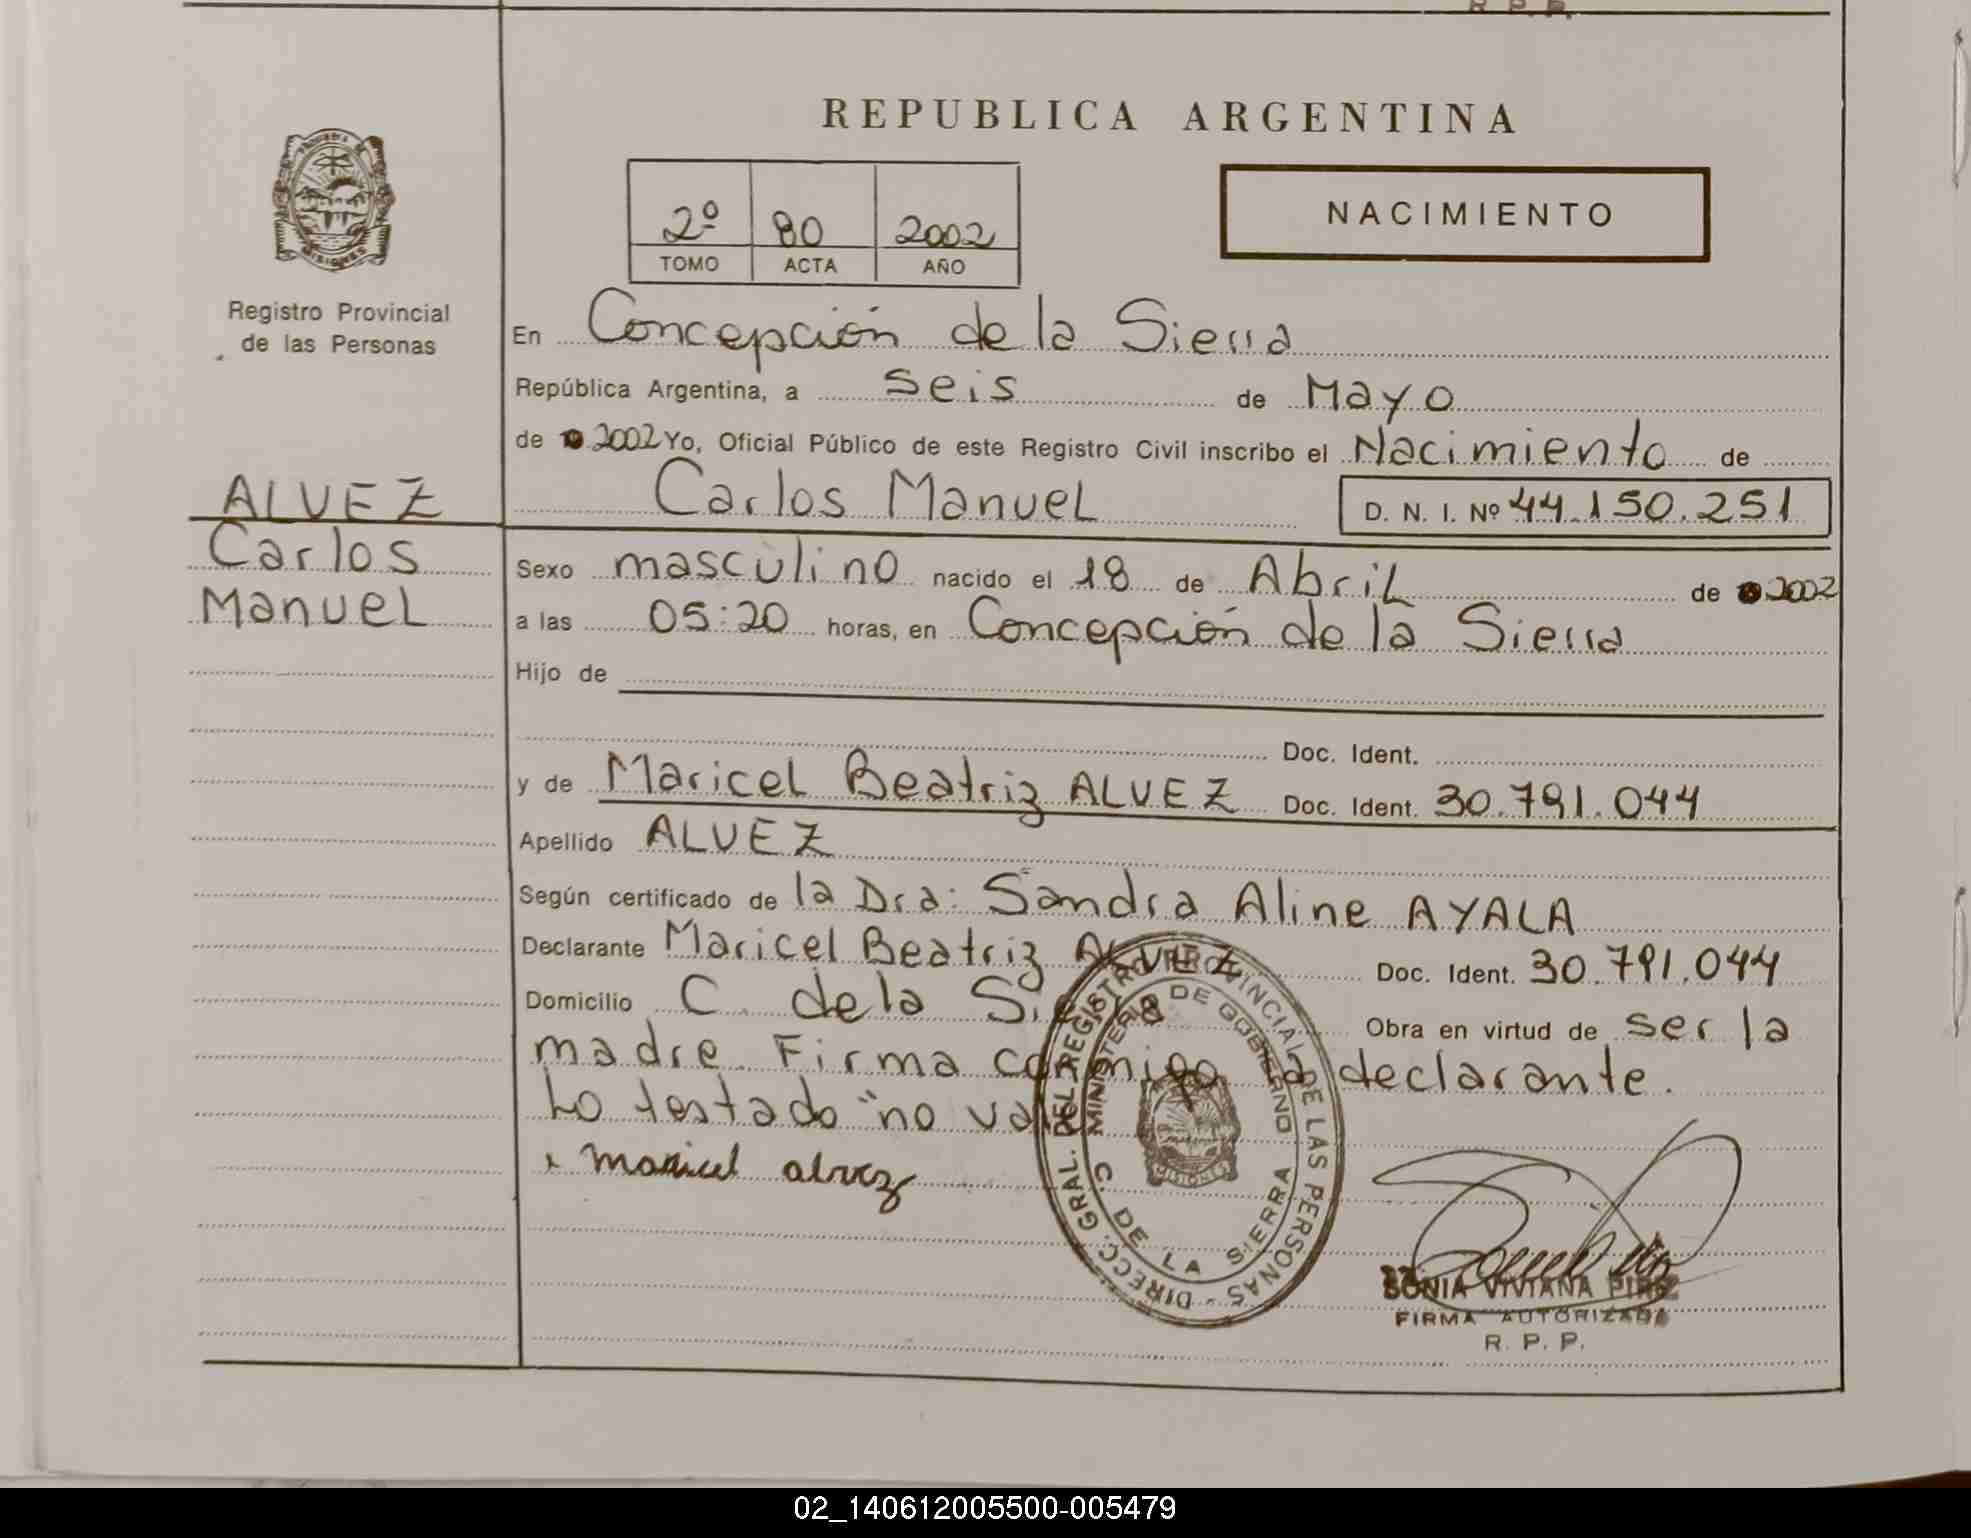 R. P. P.
REPUBLICA ARGENTINA
2º 80 2002
TOMO ACTA AÑO
NACIMIENTO
MISIONES
Registro Provincial
de las Personas
ALVEZ
Carlos
Manuel
En Concepción de la Sierra
República Argentina, a seis de Mayo
de 2002 Yo, Oficial Público de este Registro Civil inscribo el Nacimiento de
Carlos Manuel D. N. I. Nº 44.150.251
Sexo masculino nacido el 18 de Abril de 2002
a las 05:20 horas, en Concepción de la Sierra
Hijo de
Doc. Ident.
y de Maricel Beatriz ALVEZ Doc. Ident. 30.791.044
Apellido ALVEZ
Según certificado de la Dra: Sandra Aline AYALA
Declarante Maricel Beatriz ALVEZ Doc. Ident. 30.791.044
Domicilio C. de la Sierra Obra en virtud de ser la
madre. Firma conmigo la declarante.
Lo testado "no vale
x maricel alvez
DIRECC. GRAL. DEL REGISTRO PROVINCIAL DE LAS PERSONAS -
MINISTERIO DE GOBIERNO
C. DE LA SIERRA
MISIONES
SONIA VIVIANA
FIRMA AUTORIZADA
R. P. P.
02_140612005500-005479